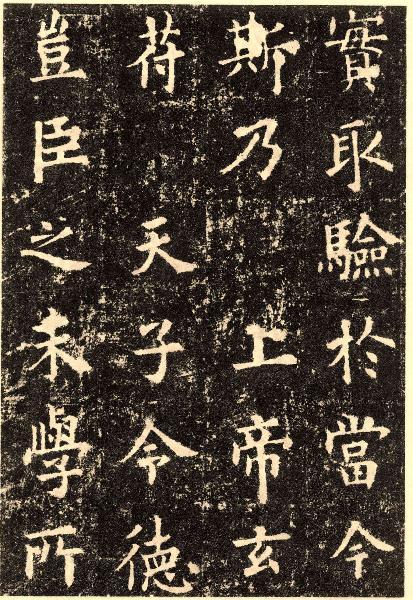 實取驗於當今
斯乃 上帝玄
苻 天子令德
豈臣之末學所